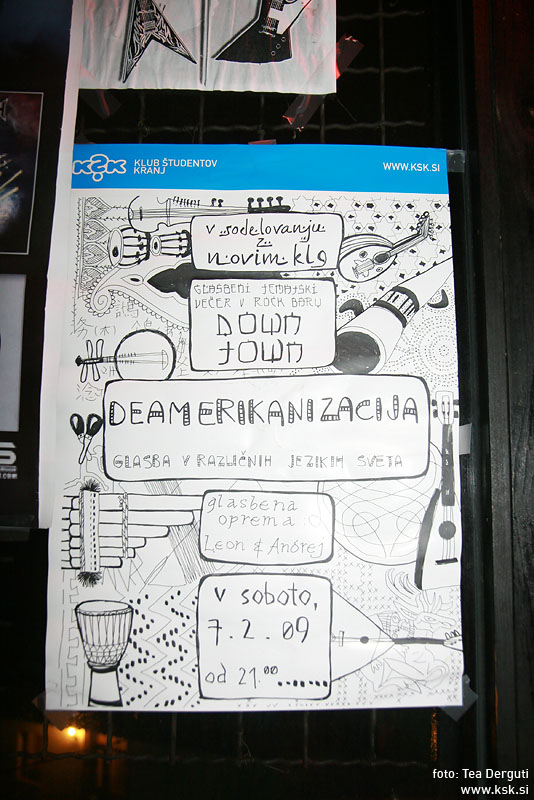 KŠK KLUB ŠTUDENTOV
KRANJ
WWW.KSK.SI
v sodelovanju
z
novim klg
GLASBENI TEMATSKI
VEČER V ROCK BARU
DOWN
TOWN
DEAMERIKANIZACIJA
GLASBA V RAZLIČNIH JEZIKIH SVETA
glasbena
oprema :
Leon & Andrej
v soboto,
7. 2. 09
od 21.00
foto: Tea Derguti
www.ksk.si